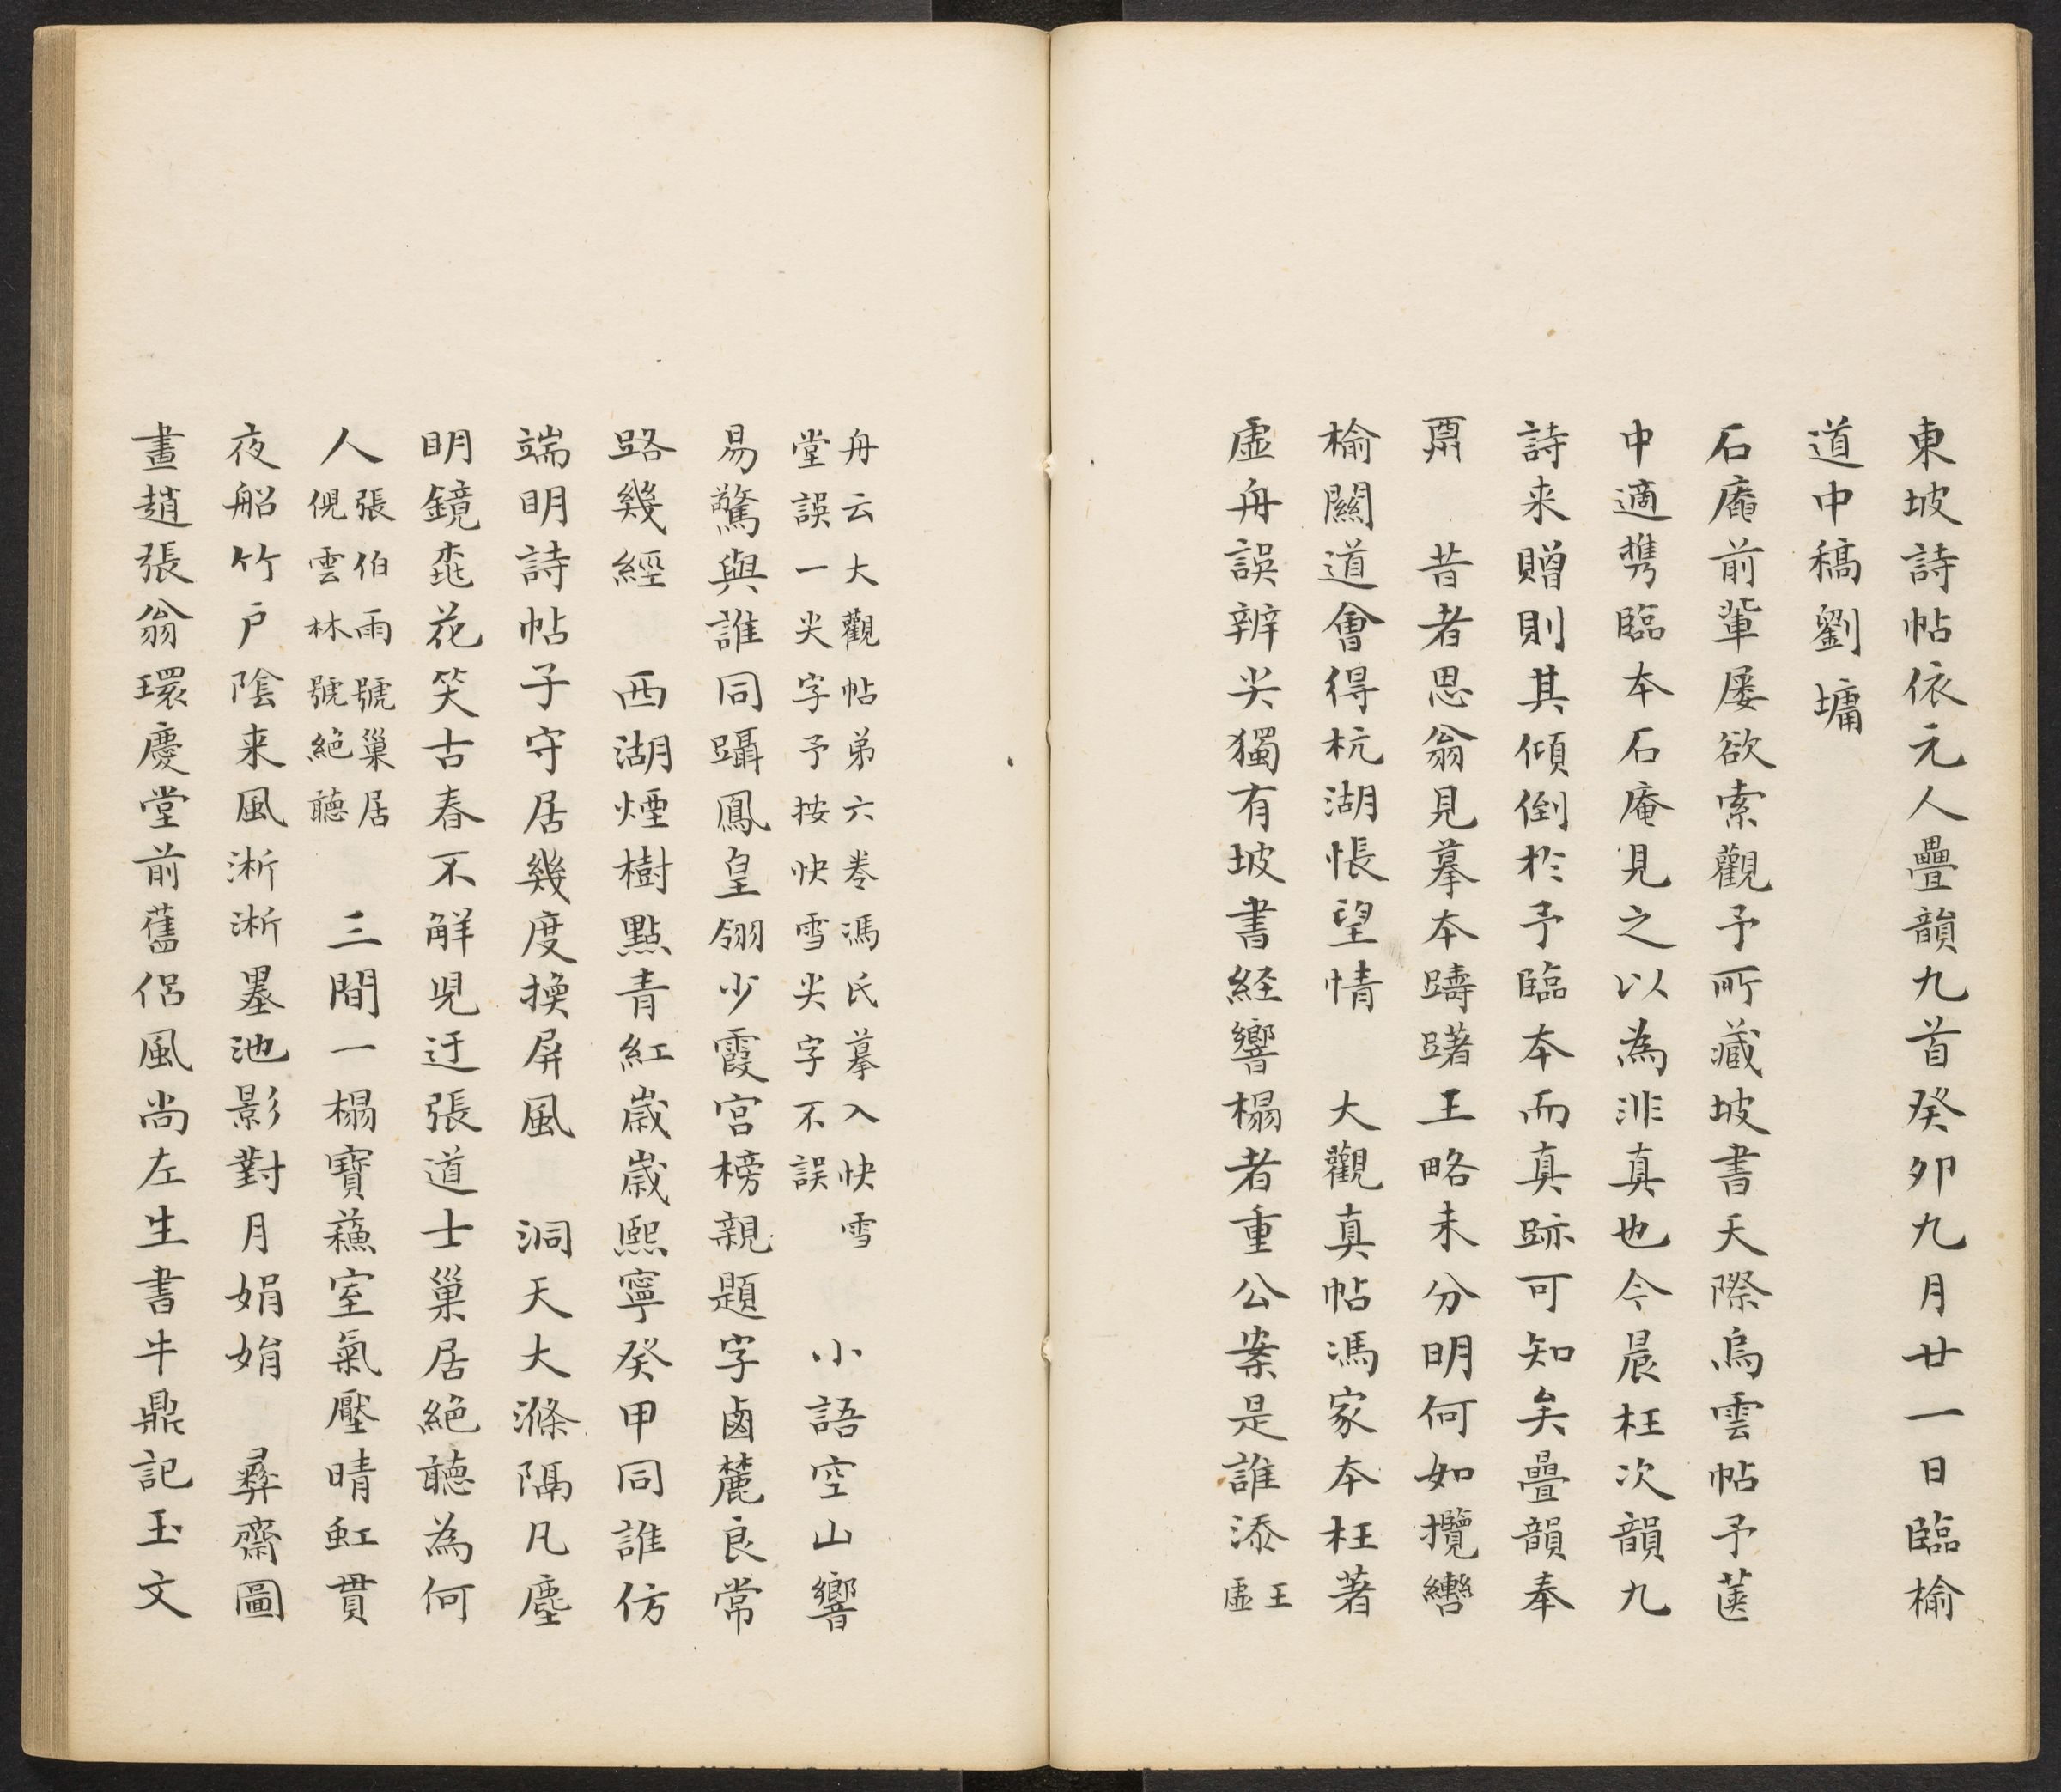 東坡詩帖依元人疊韻九首癸夘九月廿一日臨榆
道中稿劉墉
石庵前輩屢欲索觀予所藏坡書天際烏雲帖予篋
中適携臨本石庵見之以為非真也今晨枉次韻九
詩来贈則其傾倒於予臨本而真跡可知矣疊韻奉
酬 昔者思翁見摹本躊躇王略未分明何如攬轡
榆關道會得杭湖悵望情 大觀真帖馮家本枉著
虛舟誤辨尖獨有坡書経響榻者重公案是誰添
王
虛
舟云大觀帖弟六卷馮氏摹入快雪
堂誤一尖字予按快雪尖字不誤
小語空山響
易驚與誰同躡鳳皇翎少霞宮榜親題字鹵麓良常
路幾經 西湖煙樹點青紅歲歲熙寧癸甲同誰仿
端明詩帖子守居幾度換屏風 洞天大滌隔凡塵
明鏡桃花笑古春不解兒迂張道士巢居絕聽為何
人
張伯雨號巢居
倪雲林號絕聽
三間一榻寶蘓室氣壓晴虹貫
夜船竹戶陰来風淅淅墨池影對月娟娟 彝齋圖
畫趙張翁環慶堂前舊侶風尚左生書牛鼎記玉文